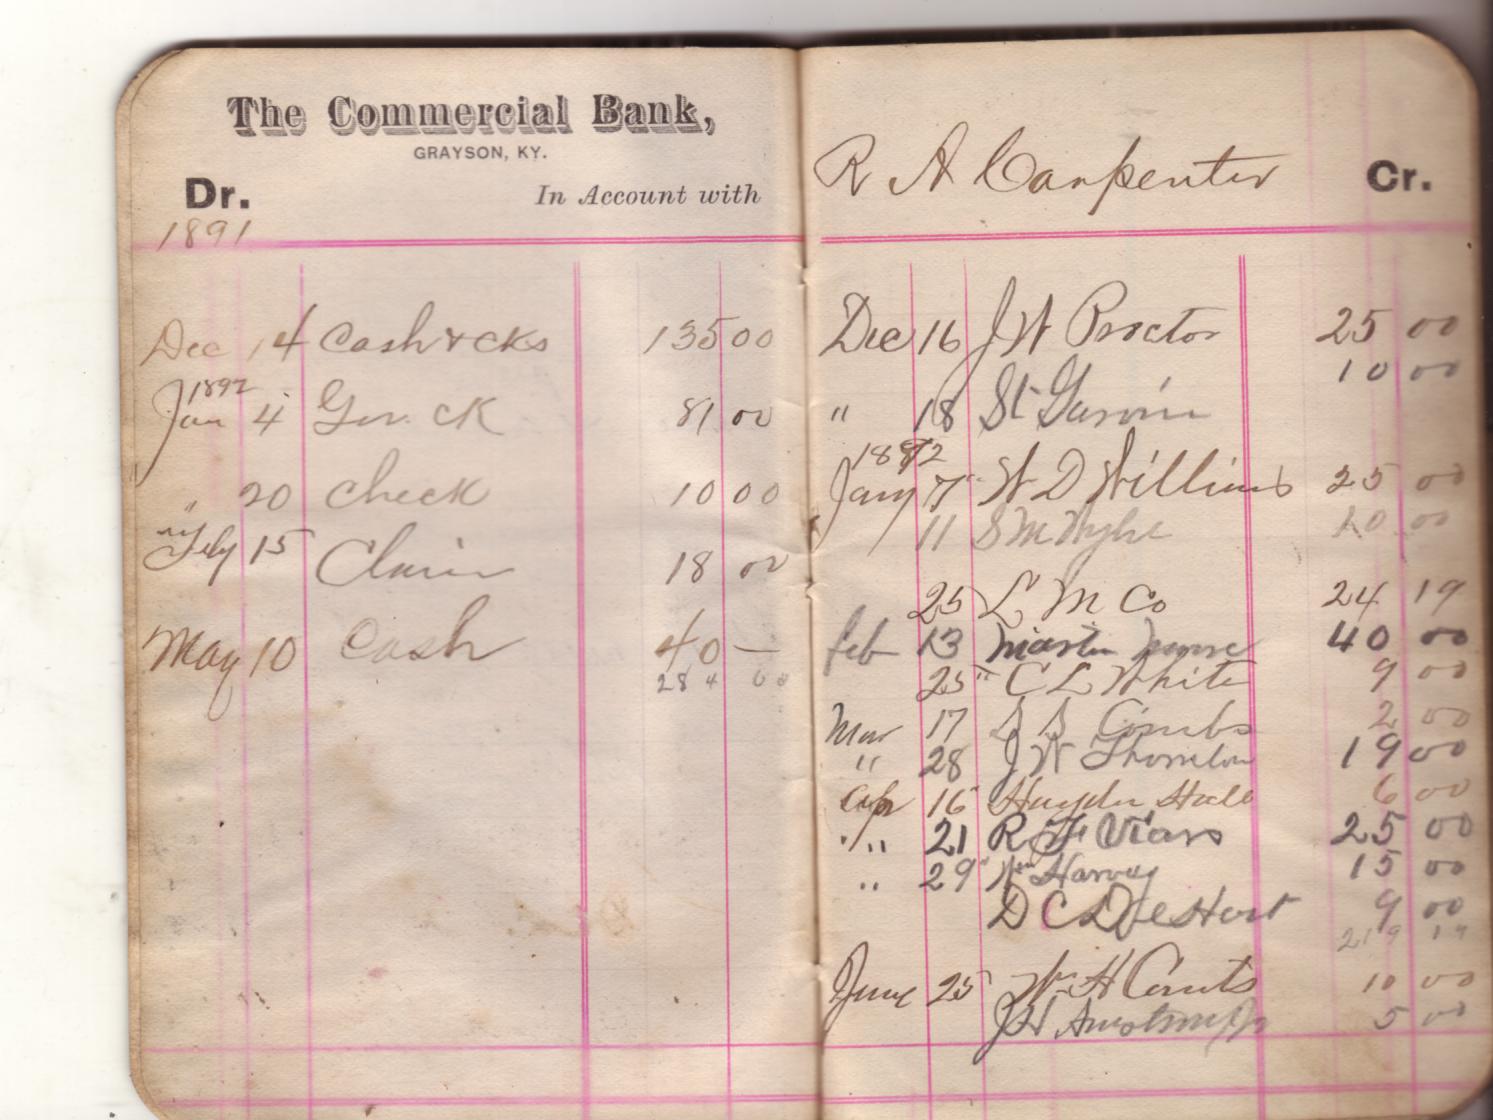 The Commercial Bank,
GRAYSON, KY.
Dr. In Account with
1891
Dec 14 Cash & cks 135 00
1892
Jan 4 Gov. CK 81 00
" 20 Check 10 00
Feby 15 Claim 18 00
May 10 Cash 40 —
284 00
R A Carpenter Cr.
Dec 16 J W Proctor 25 00
10 00
" 18 St Garvin
1892
Jany 7 W D Williams 25 00
11 S M 10 00
25 L M Co 24 19
Feb 13 Martin 40 00
25 " C L White 9 00
Mar 17 Combs 2 00
" 28 J W Thornton 19 00
Apr 16 Hayden Hall 6 00
" 21 R F Viars 25 00
" 29 Wm Harvey 15 00
D C 9 00
219 19
June 25 W H Counts 10 00
J H Armstrong Jr 5 00